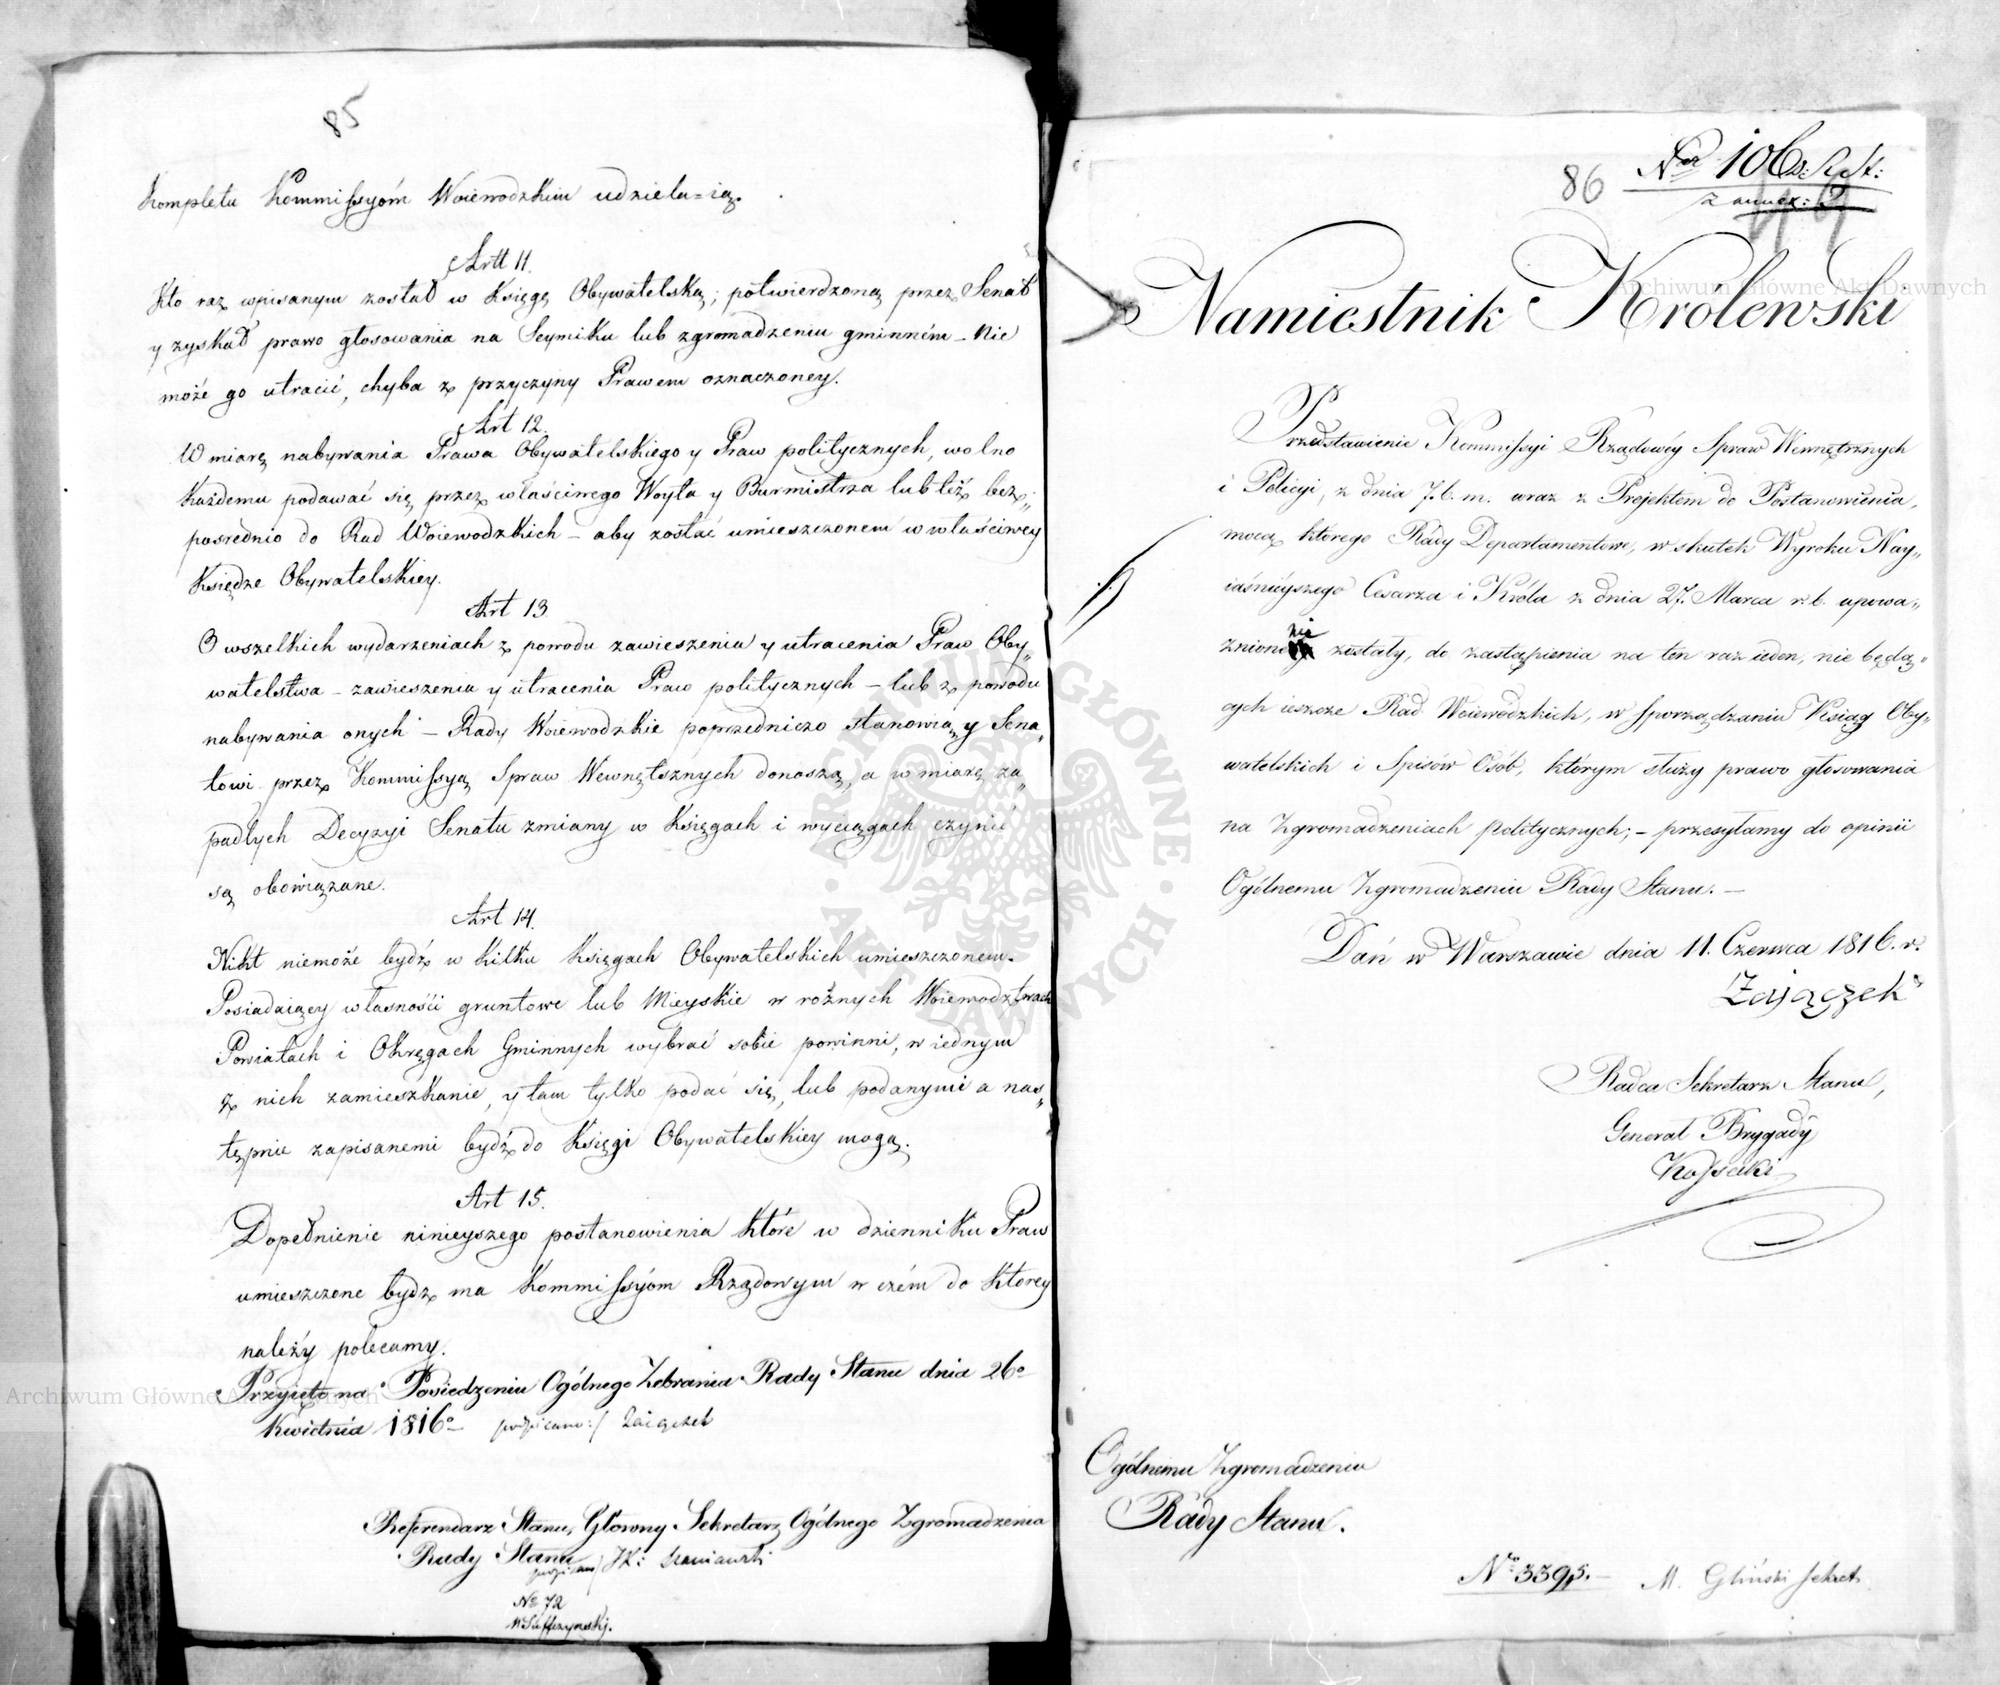 85
Kompletu Kommissyóm Woiewodzkim udziela=ią.
Artt 11.
Kto raz wpisanym został w Księgę Obywatelską; potwierdzoną przez Senat
y zyskał prawo głosowania na Seymiku lub zgromadzeniu gminném – Nie
może go utracić, chyba z przyczyny Prawem oznaczoney.
Art 12.
W miarę nabywania Prawa Obywatelskiego y Praw politycznych, wolno
Każdemu podawać się przez właściwego Woyta y Burmistrza lub też bez„
posrednio do Rad Woiewodzkich – aby zostać umieszczonem w właściwey
Księdze Obywatelskiey.
Art 13
O wszelkich wydarzeniach z powodu zawieszenia y utracenia Praw Oby„
watelstwa – zawieszenia y utracenia Praw politycznych – lub z powodu
nabywania onych – Rady Woiewodzkie poprzedniczo stanowią, y Sena„
towi przez Kommissyą Spraw Wewnętsznych donoszą, a w miarę za„
padłych Decyzyi Senatu zmiany w Księgach i wyciągach czynić
są obowiązane.
Art 14.
Nikt niemoże bydź w kilku Księgach Obywatelskich umieszczonem.
Posiadaiący własności gruntowe lub Mieyskie w rożnych Woiewodztwach
Powiatach i Okręgach Gminnych wybrać sobie powinni, w iednym
z nich zamieszkanie, y tam tylko podać się, lub podanymi a nas„
tępnie zapisanemi bydź do Księgi Obywatelskiey mogą.
Art 15.
Dopełnienie ninieyszego postanowienia które w dzienniku Praw
umieszczone bydz ma Kommissyóm Rządowym w czém do Ktorey
należy polecamy.
Przyięto na Posiedzeniu Ogólnego Zebrania Rady Stanu dnia 26º
Kwietnia 1816º podpisano:/ Zaiączek
Referendarz Stanu, Głowny Sekretarz Ogólnego Zgromadzenia
Rady Stanu
podpisano/ JK: Szaniawski
No 72
86
Nr 106
Namiestnik Krolewski
Przedstawienie Kommissyi Rządowéy Spraw Wewnętrznych
i Policyi, z dnia 7. b. m. wraz z Projektem do Postanowienia,
mocą którego Rady Departamentowe, w skutek Wyroku Nay„
iaśnieyszego Cesarza i Króla z dnia 27. Marca r. b. upowa„
żnione zostały, do zastąpienia na ten raz ieden, nie będą„
cych ieszcze Rad Woiewodzkich, w sporządzaniu Ksiąg Oby„
watelskich i Spisów Osób, którym służy prawo głosowania
na Zgromadzeniach politycznych; – przesyłamy do opinii
Ogólnemu Zgromadzeniu Rady Stanu. –
Dań w Warszawie dnia 11. Czerwca 1816. r.
Zajączek
Radca Sekretarz Stanu,
Generał Brygady
Kossecki
Ogólnemu Zgromadzeniu
Rady Stanu.
No 3395. –
M. Gliński Sekret.
Archiwum Główne Akt Dawnych
Archiwum Główne Akt Dawnych
ARCHIWUM GŁÓWNE AKT DAWNYCH